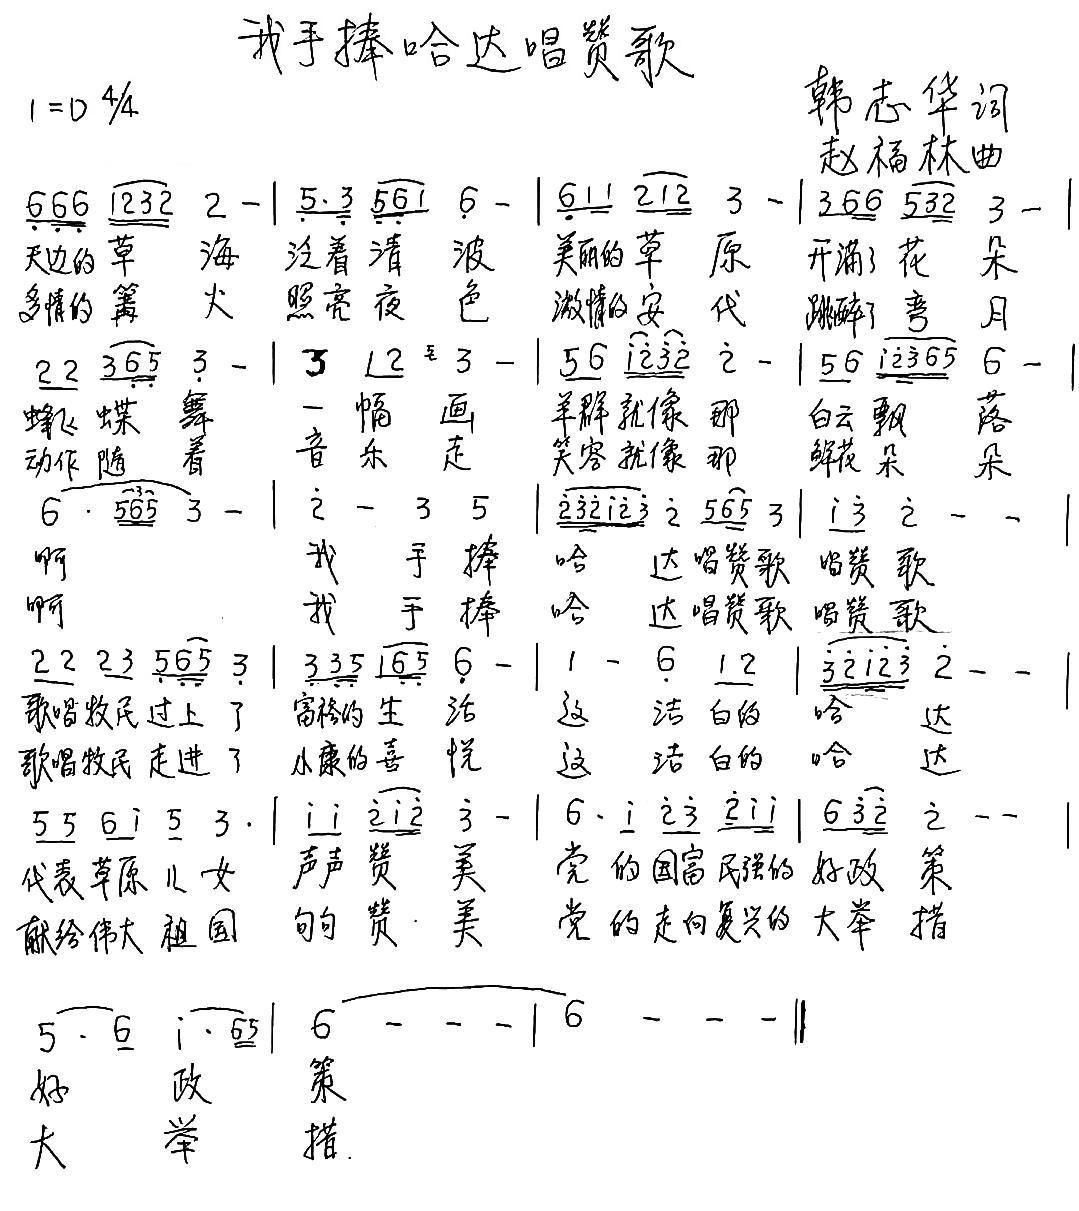 我手捧哈达唱赞歌
1=D 4/4
韩志华词
赵福林曲
666 1232 2 - | 5·3 561 6 - | 611 212 3 - | 366 532 3 - |
天边的草 海 泛着清 波 美丽的草 原 开满了花 朵
多情的篝 火 照亮夜 色 激情的安 代 跳醉了弯 月
22 365 3 - | 3 12 3 - | 56 i232 2 - | 56 i2365 6 - |
蜂飞蝶 舞 一 幅 画 羊群就像 那 白云飘 落
动作随 着 音 乐 走 笑容就像 那 鲜花朵 朵
6 · 565 3 - | 2 - 3 5 | 232i23 2 565 3 | i3 2 - - |
啊 我 手捧 哈 达唱赞歌 唱赞歌
啊 我 手捧 哈 达唱赞歌 唱赞歌
22 23 565 3 | 335 165 6 - | 1 - 6 12 | 32i23 2 - - |
歌唱牧民过上了 富裕的生 活 这 洁白的 哈 达
歌唱牧民走进了 小康的喜 悦 这 洁白的 哈 达
55 6i 5 3· | ii 2i2 3 - | 6·i 23 2ii | 632 2 - - |
代表草原儿女 声声赞 美 党 的国富民强的 好政 策
献给伟大祖国 句句赞 美 党 的走向复兴的 大举 措
5 · 6 i · 65 | 6 - - - | 6 - - - ‖
好 政 策
大 举 措